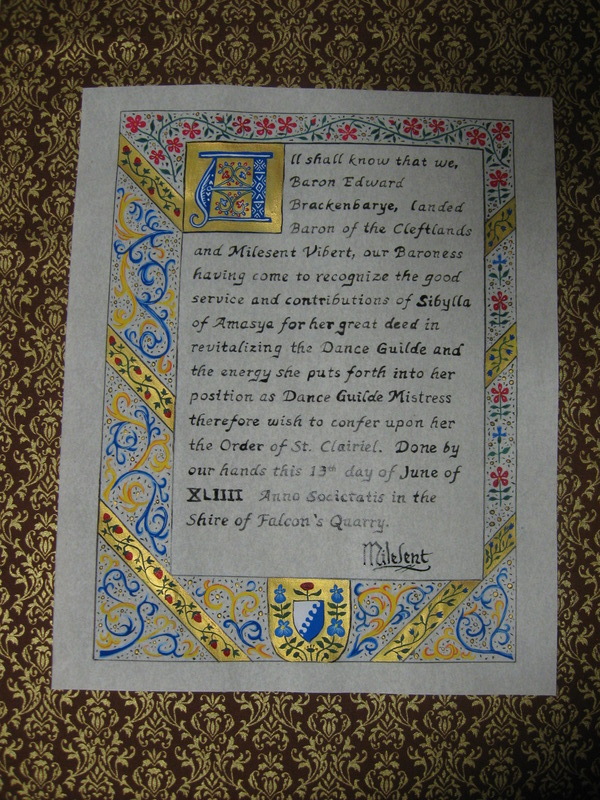 All shall know that we,
Baron Edward
Brackenbarye, landed
Baron of the Cleftlands
and Milesent Vibert, our Baroness
having come to recognize the good
service and contributions of Sibylla
of Amasya for her great deed in
revitalizing the Dance Guilde and
the energy she puts forth into her
position as Dance Guilde Mistress
therefore wish to confer upon her
the Order of St. Clairiel. Done by
our hands this 13th day of June of
XLIIII Anno Societatis in the
Shire of Falcon's Quarry.
Milesent